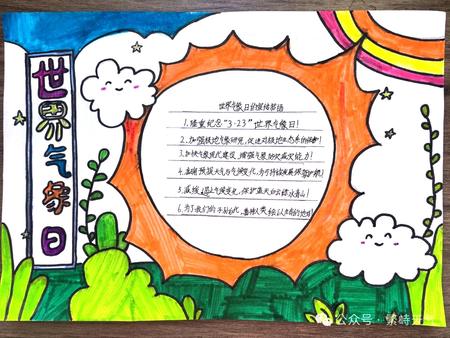 世界气象日
世界气象日的宣传标语
1.隆重纪念“3·23”世界气象日!
2.加强极地气象研究,促进对极地生态系的保护!
3.加快气象现代建设,增强气象防灾减灾能力!
4.准确预报天气与气候变化,为可持续发展保驾护航!
5.应对气候变化,保护蓝天白云绿水青山!
6.为了我们的子孙后代,
公众号·繁峙